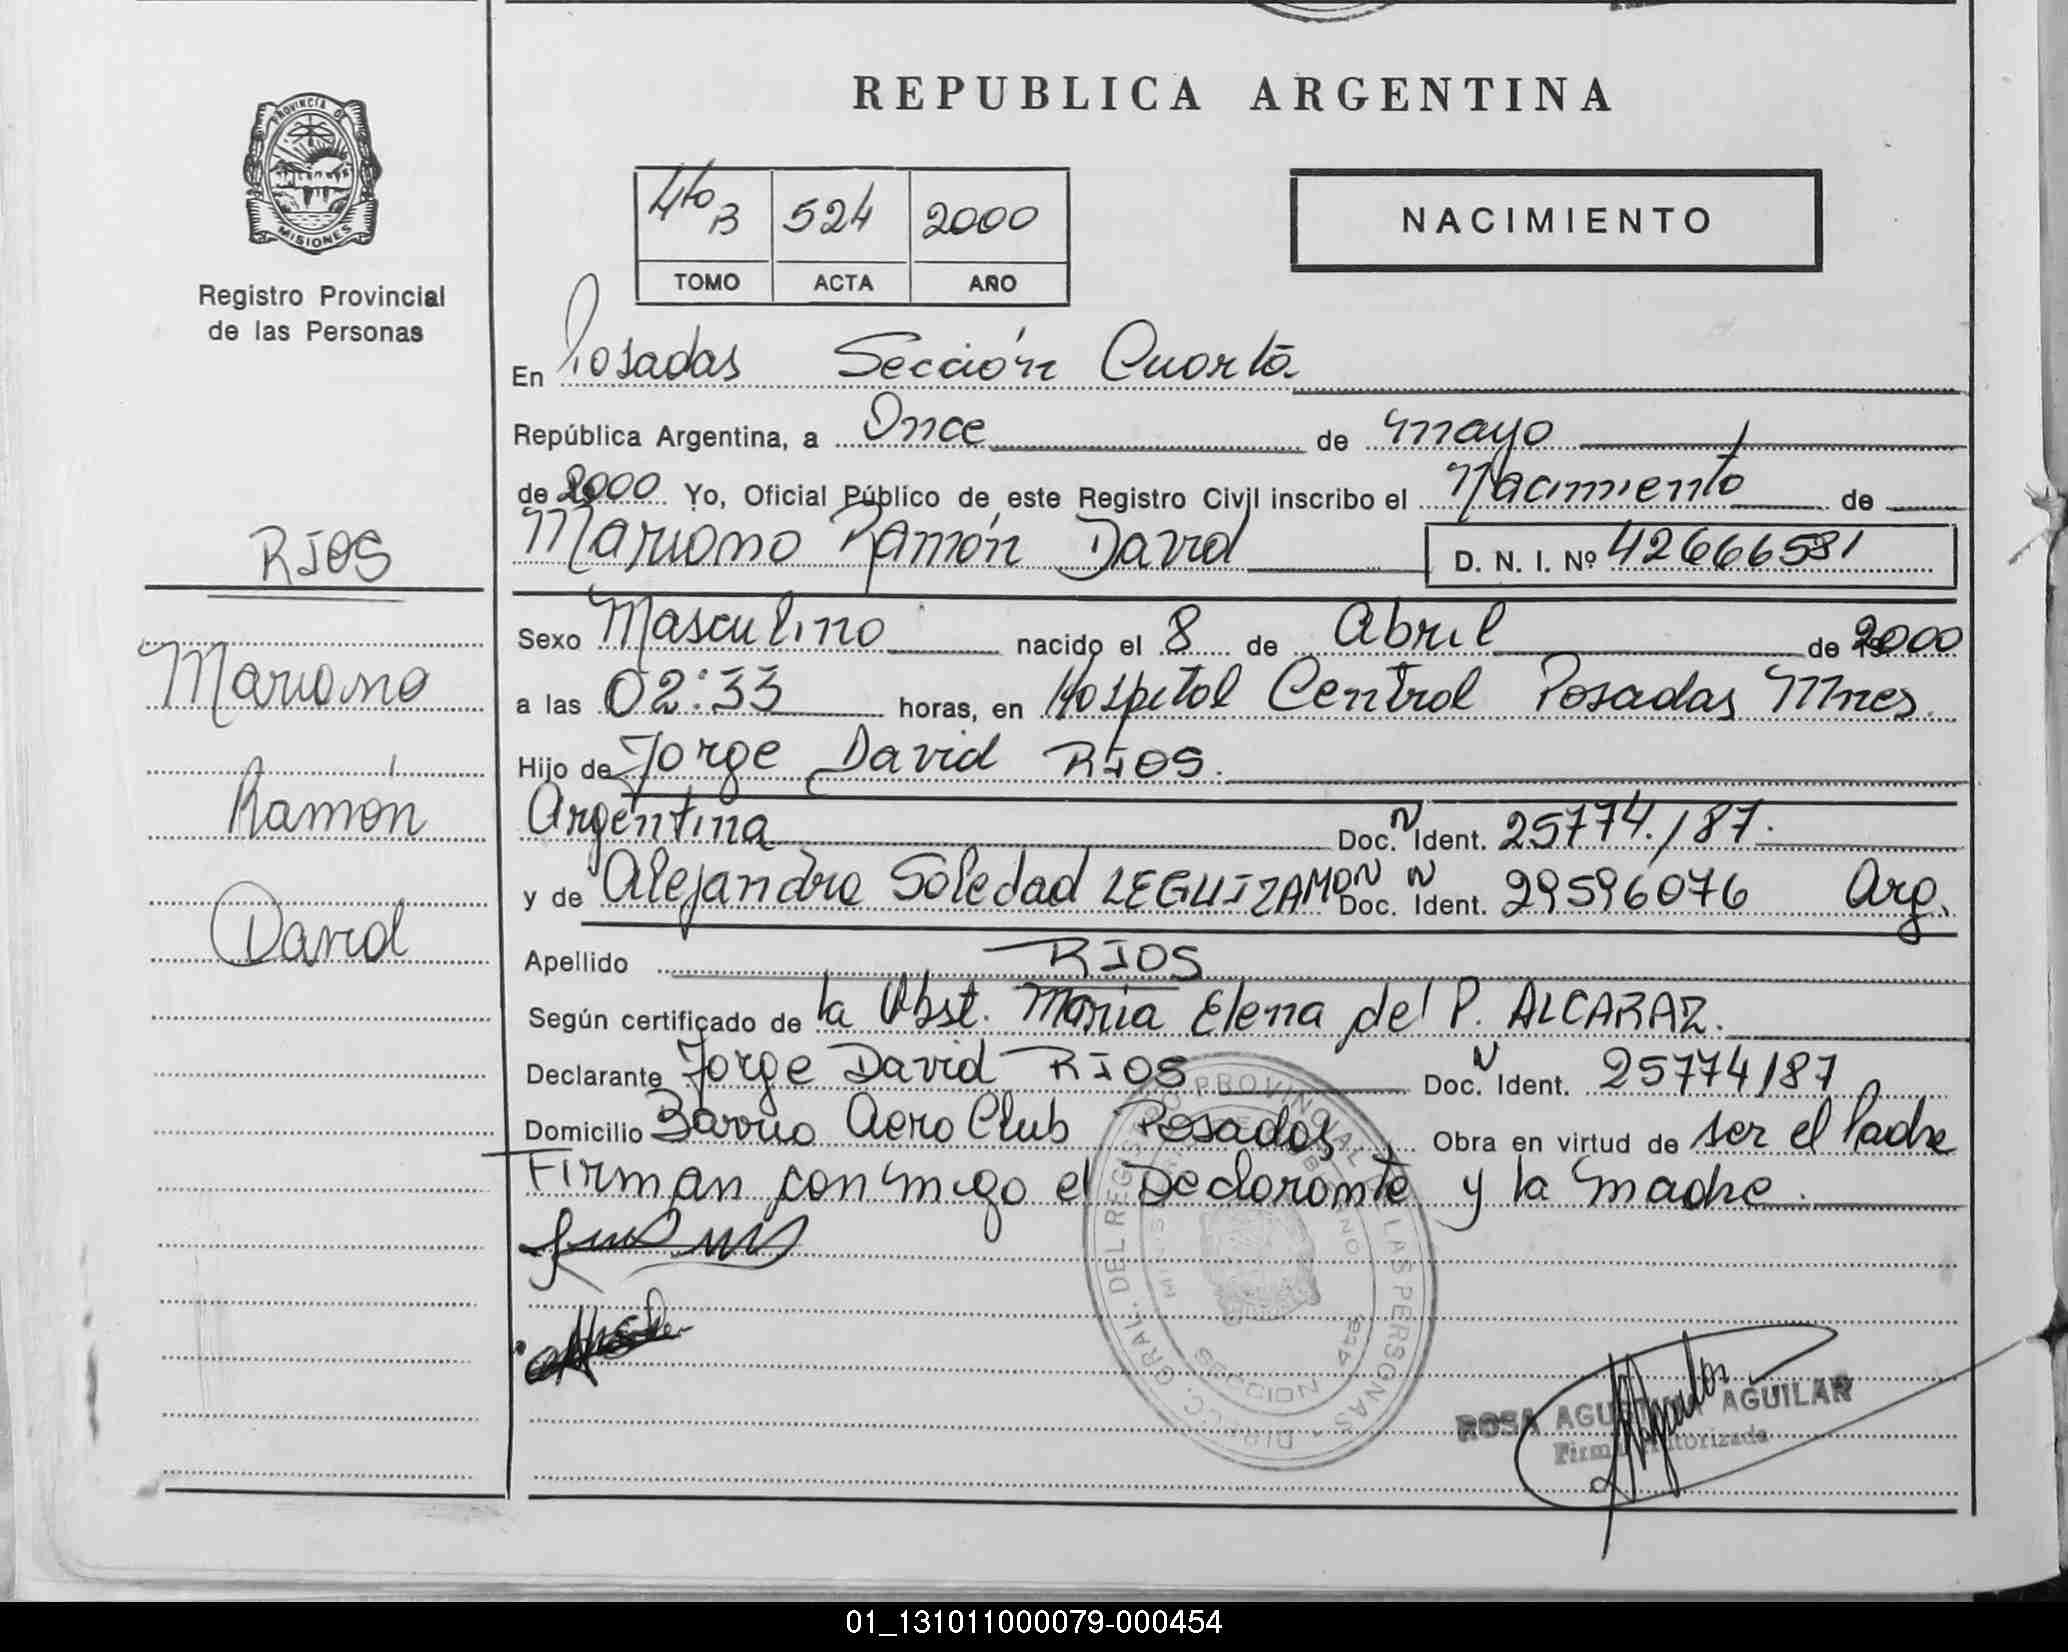 REPUBLICA ARGENTINA
PROVINCIA DE
MISIONES
Registro Provincial
de las Personas
4to B 524 2000
TOMO ACTA AÑO
NACIMIENTO
En Posadas Sección Cuarta
República Argentina, a Once de mayo
de 2000 Yo, Oficial Público de este Registro Civil inscribo el Nacimiento de
Mariano Ramón David D. N. I. Nº 42666581
RIOS
Mariano
Ramón
David
Sexo Masculino nacido el 8 de Abril de 2000
a las 02:33 horas, en Hospital Central Posadas Mnes.
Hijo de Jorge David RIOS.
Argentina Doc. N Ident. 25774.187.
y de Alejandra Soledad LEGUIZAMON Doc. N Ident. 29596076 Arg.
Apellido RIOS
Según certificado de la Obst. Maria Elena del P. ALCARAZ.
Declarante Jorge David RIOS Doc. N Ident. 25774187
Domicilio Barrio Aero Club Posadas Obra en virtud de ser el Padre
Firman conmigo el Declarante y la madre.
DIRECC. GRAL. DEL REGISTRO PROVINCIAL DE LAS PERSONAS
SECCION 4ta
ROSA AGUSTINA AGUILAR
Firma Autorizada
01_131011000079-000454